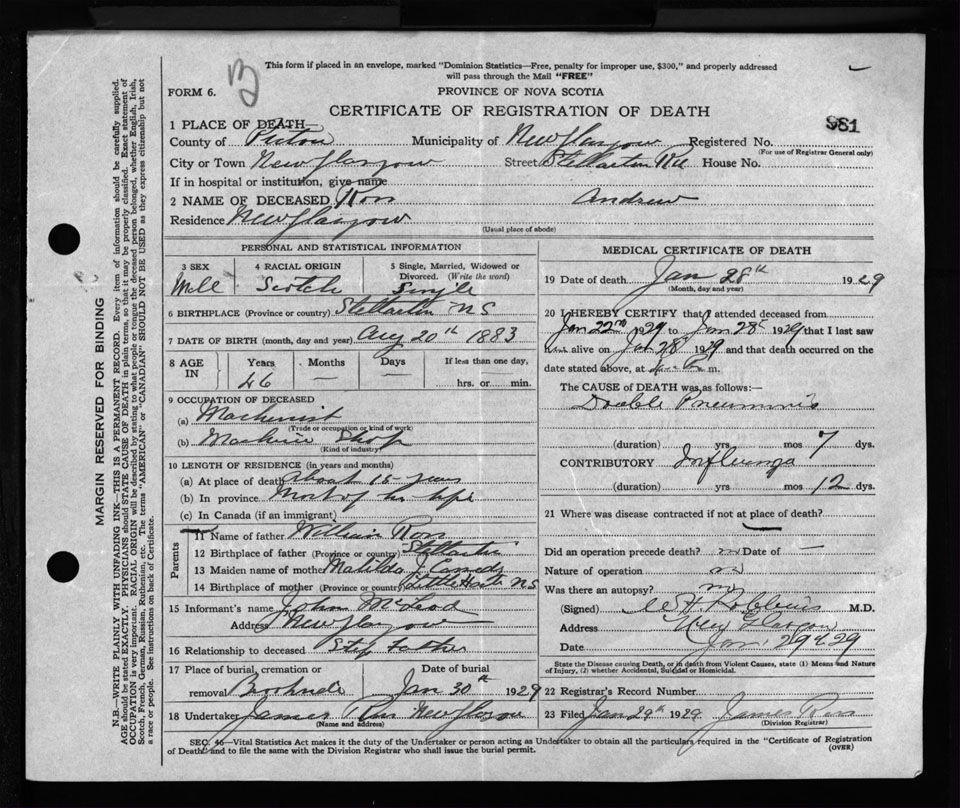 This form if placed in an envelope, marked "Dominion Statistics—Free, penalty for improper use, $300," and properly addressed
will pass through the Mail "FREE"
FORM 6.
PROVINCE OF NOVA SCOTIA
CERTIFICATE OF REGISTRATION OF DEATH
981
1 PLACE OF DEATH—
County of Pictou Municipality of New Glasgow Registered No.
(For use of Registrar General only)
City or Town New Glasgow Street Stellarton Rd House No.
If in hospital or institution, give name
2 NAME OF DECEASED Ross Andrew
Residence New Glasgow
(Usual place of abode)
PERSONAL AND STATISTICAL INFORMATION
3 SEX 4 RACIAL ORIGIN 5 Single, Married, Widowed or
Divorced. (Write the word)
Male Scotch Single
6 BIRTHPLACE (Province or country) Stellarton N S
7 DATE OF BIRTH (month, day and year) Aug 20th 1883
8 AGE IN Years Months Days If less than one day,
46 — — hrs. or min.
9 OCCUPATION OF DECEASED
(a) Machinist
(Trade or occupation or kind of work)
(b) Machine Shop
(Kind of industry)
10 LENGTH OF RESIDENCE (in years and months)
(a) At place of death About 15 years
(b) In province Most of his life
(c) In Canada (if an immigrant)
Parents
11 Name of father William Ross
12 Birthplace of father (Province or country) Stellarton
13 Maiden name of mother Matilda J
14 Birthplace of mother (Province or country) Little Harbor N S
15 Informant's name John McLeod
Address New Glasgow
16 Relationship to deceased Step Father
17 Place of burial, cremation or Date of burial
removal Jan 30th 1929
18 Undertaker James Ross New Glasgow
(Name and address)
MEDICAL CERTIFICATE OF DEATH
19 Date of death Jan 28th 1929
(Month, day and year)
20 I HEREBY CERTIFY that I attended deceased from
Jan 22nd 1929 to Jan 28th 1929 that I last saw
him alive on Jan 28 1929 and that death occurred on the
date stated above, at P. m.
The CAUSE of DEATH was as follows:—
Double Pneumonia
(duration) yrs mos 7 dys.
CONTRIBUTORY Influenza
(duration) yrs mos 12 dys.
21 Where was disease contracted if not at place of death?
—
Did an operation precede death? no Date of —
Nature of operation no
Was there an autopsy? no
(Signed) Robbins M.D.
Address New Glasgow
Date Jan 29th 29
State the Disease causing Death, or in death from Violent Causes, state (1) Means and Nature
of Injury, (2) whether Accidental, Suicidal or Homicidal.
22 Registrar's Record Number
23 Filed Jan 29th 1929 James Ross
(Division Registrar)
SEC. 46—Vital Statistics Act makes it the duty of the Undertaker or person acting as Undertaker to obtain all the particulars required in the "Certificate of Registration
of Death" and to file the same with the Division Registrar who shall issue the burial permit.
(OVER)
MARGIN RESERVED FOR BINDING
N.B.—WRITE PLAINLY WITH UNFADING INK—THIS IS A PERMANENT RECORD. Every item of information should be carefully supplied.
AGE should be stated EXACTLY. PHYSICIANS should STATE CAUSE OF DEATH in plain terms, so that it may be properly classified. Exact statement of
OCCUPATION is very important. RACIAL ORIGIN will be described by stating to what people or tongue the deceased person belonged, whether English, Irish,
Scotch, French, German, Russian, Ruthenian, etc. The terms "AMERICAN" or "CANADIAN" SHOULD NOT BE USED as they express citizenship but not
a race or people. See instructions on back of Certificate.